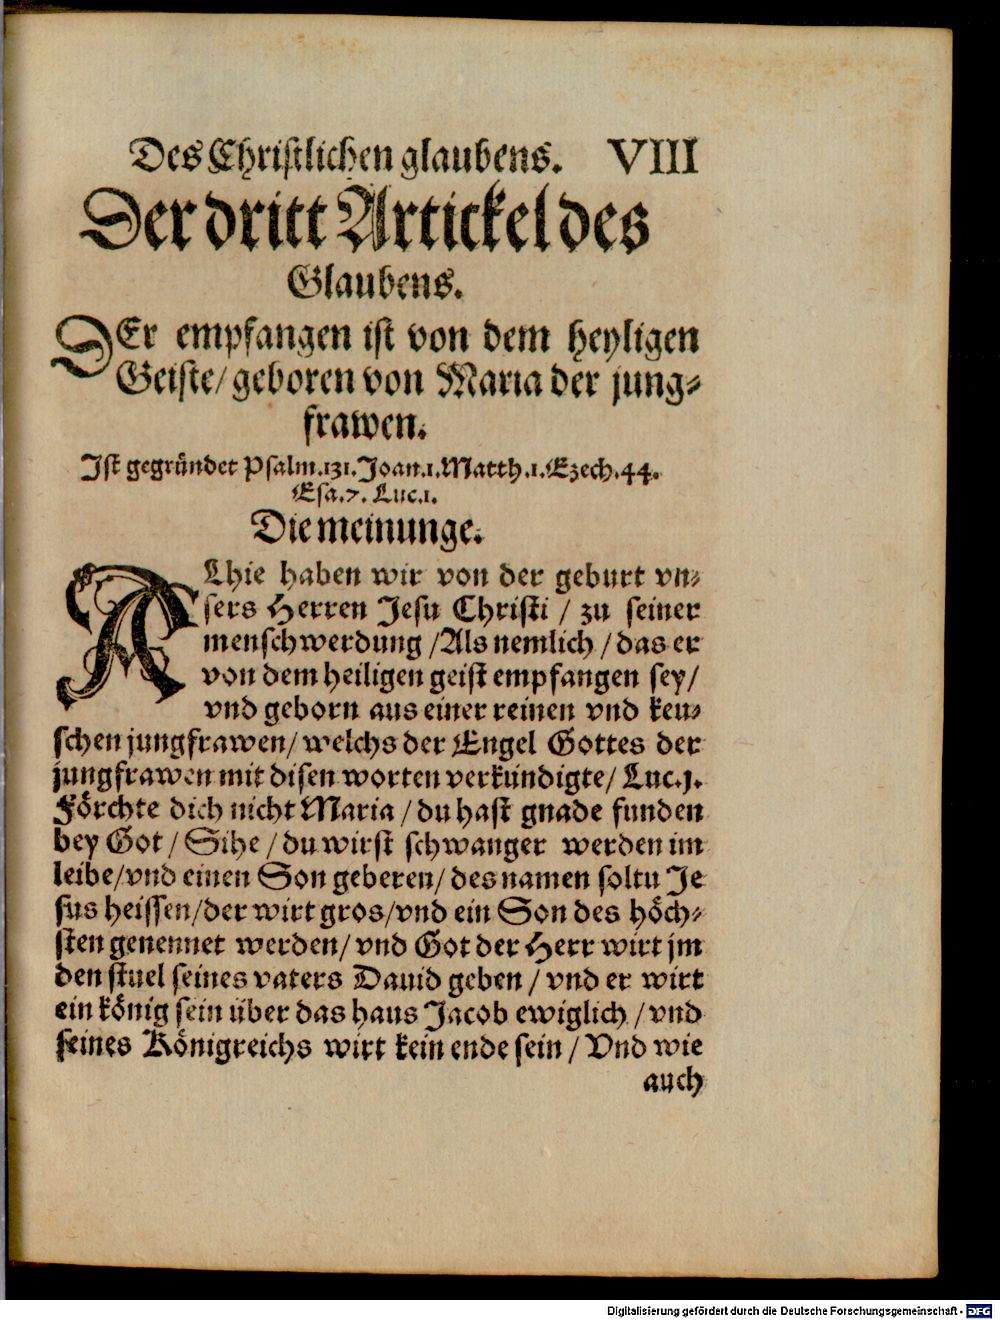 Des Christlichen glaubens. VIII
Der dritt Artickel des
Glaubens.
DEr empfangen ist von dem heyligen
Geiste/ geboren von Maria der jung⸗
frawen.
Ist gegründet Psalm.131. Joan.1. Matth.1. Ezech.44.
Esa.7. Luc.1.
Die meinunge.
ALhie haben wir von der geburt vn⸗
sers Herren Jesu Christi / zu seiner
menschwerdung /Als nemlich / das er
von dem heiligen geist empfangen sey/
vnd geborn aus einer reinen vnd keu⸗
schen jungfrawen/ welchs der Engel Gottes der
jungfrawen mit disen worten verkündigte/ Luc.j.
Förchte dich nicht Maria / du hast gnade funden
bey Got / Sihe / du wirst schwanger werden im
leibe/vnd einen Son geberen/ des namen soltu Je
sus heissen/der wirt gros/vnd ein Son des höch⸗
sten genennet werden/ vnd Got der Herr wirt jm
den stuel seines vaters Dauid geben / vnd er wirt
ein könig sein über das haus Jacob ewiglich / vnd
seines Königreichs wirt kein ende sein / Vnd wie
auch
Digitalisierung gefördert durch die Deutsche Forschungsgemeinschaft - DFG